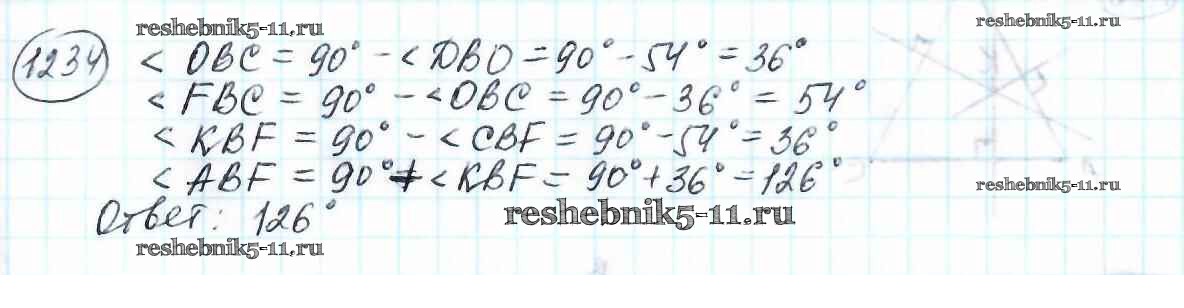 reshebnik5-11.ru
reshebnik5-11.ru
1234 < OBC = 90° - < DBO = 90° - 54° = 36°
< FBC = 90° - < OBC = 90° - 36° = 54°
< KBF = 90° - < CBF = 90° - 54° = 36°
< ABF = 90° + < KBF = 90° + 36° = 126°
reshebnik5-11.ru
Ответ: 126°
reshebnik5-11.ru
reshebnik5-11.ru